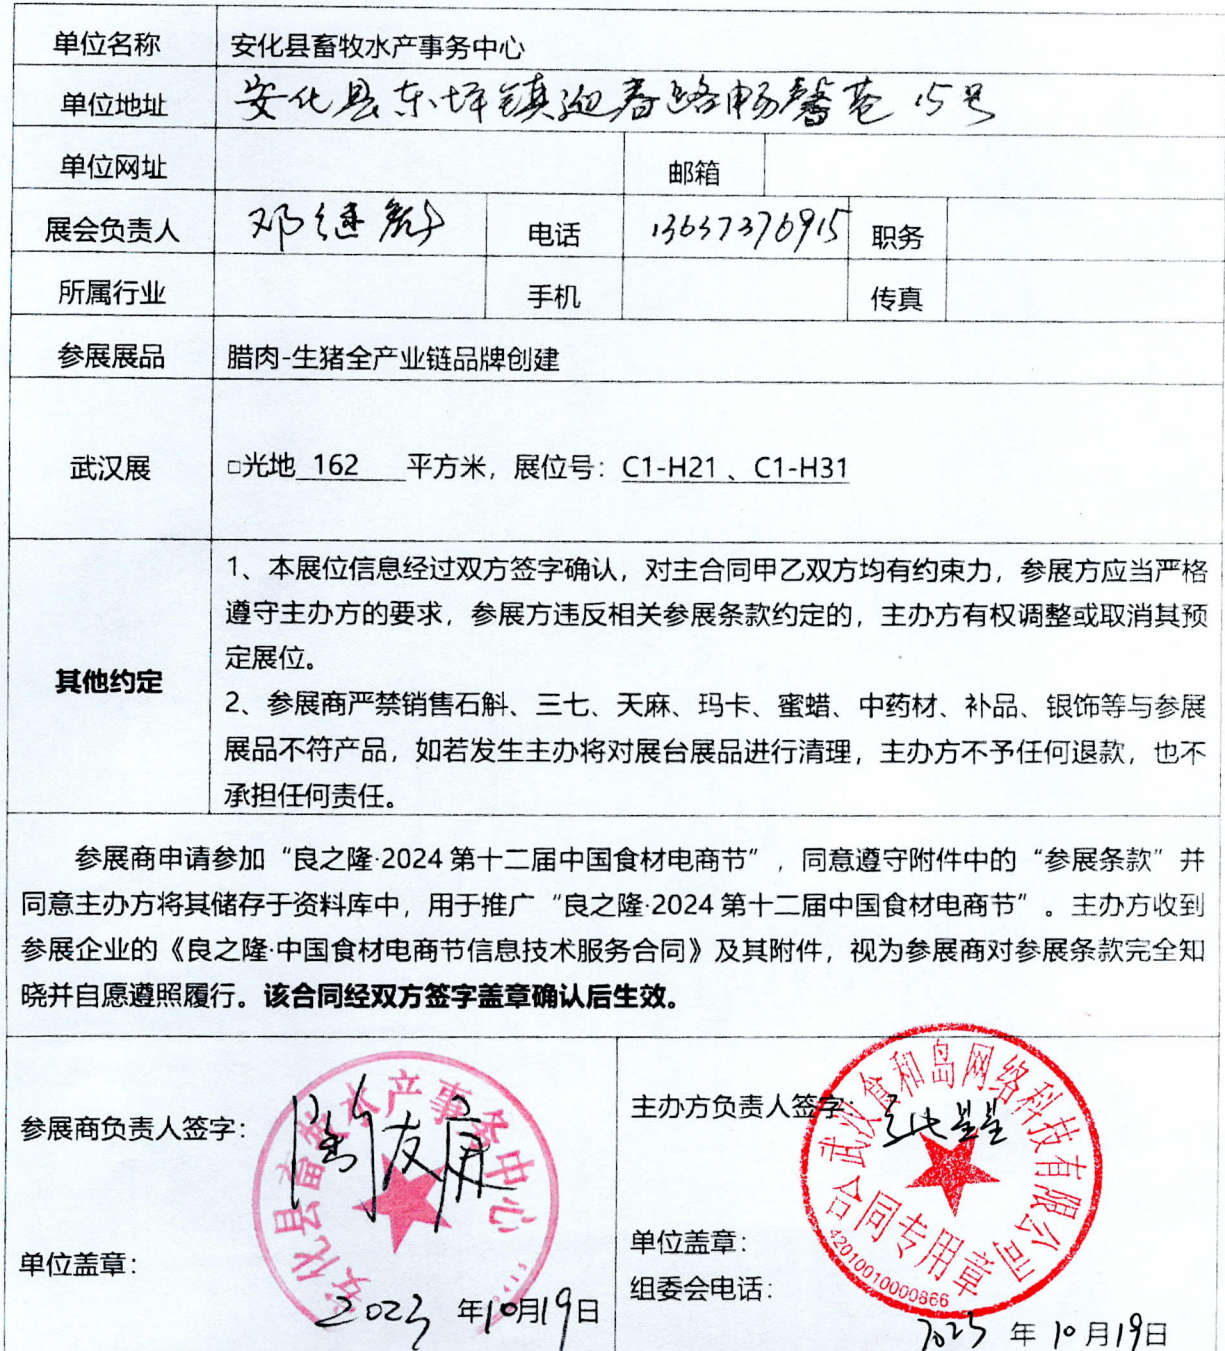 单位名称 安化县畜牧水产事务中心
单位地址 安化县东坪镇迎春路畅馨苑15号
单位网址 邮箱
展会负责人 邓继 电话 13637376915 职务
所属行业 手机 传真
参展展品 腊肉-生猪全产业链品牌创建
武汉展 □光地 162 平方米，展位号：C1-H21 、C1-H31
其他约定
1、本展位信息经过双方签字确认，对主合同甲乙双方均有约束力，参展方应当严格
遵守主办方的要求，参展方违反相关参展条款约定的，主办方有权调整或取消其预
定展位。
2、参展商严禁销售石斛、三七、天麻、玛卡、蜜蜡、中药材、补品、银饰等与参展
展品不符产品，如若发生主办将对展台展品进行清理，主办方不予任何退款，也不
承担任何责任。
参展商申请参加“良之隆·2024 第十二届中国食材电商节”，同意遵守附件中的“参展条款”并
同意主办方将其储存于资料库中，用于推广“良之隆·2024 第十二届中国食材电商节”。主办方收到
参展企业的《良之隆·中国食材电商节信息技术服务合同》及其附件，视为参展商对参展条款完全知
晓并自愿遵照履行。该合同经双方签字盖章确认后生效。
参展商负责人签字：
安化县畜牧水产事务中心
单位盖章：
2023 年10月19日
主办方负责人签字：
武汉食和岛网络科技有限公司
合同专用章
42010010000866
单位盖章：
组委会电话：
2023 年 10 月19日